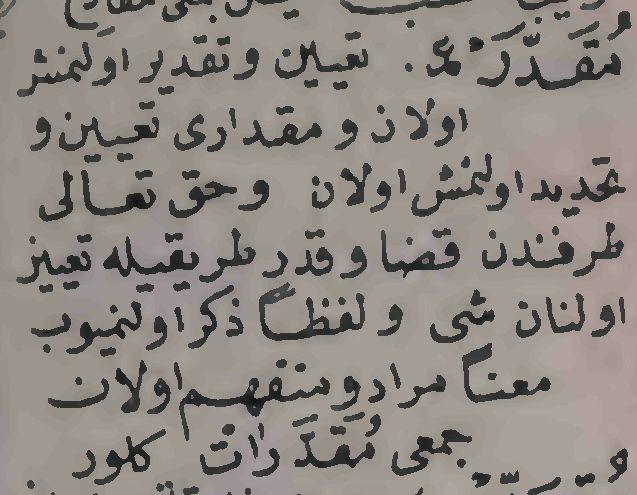 مُقَدَّرْ عم. تعيين و تقدير اولنمش
اولان و مقداری تعيين و
تحديد اولنمش اولان و حق تعالی
طرفندن قضا و قدر طريقيله تعيين
اولنان شی و لفظاً ذكر اولنميوب
معناً مراد و متفهم اولان
جمعی مُقَدَّرَاتْ كلور